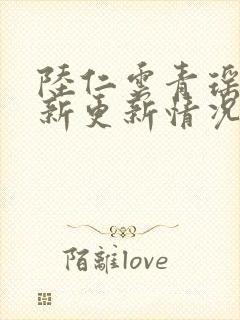 陸仁雲青瑶
新更新情况
陌離love